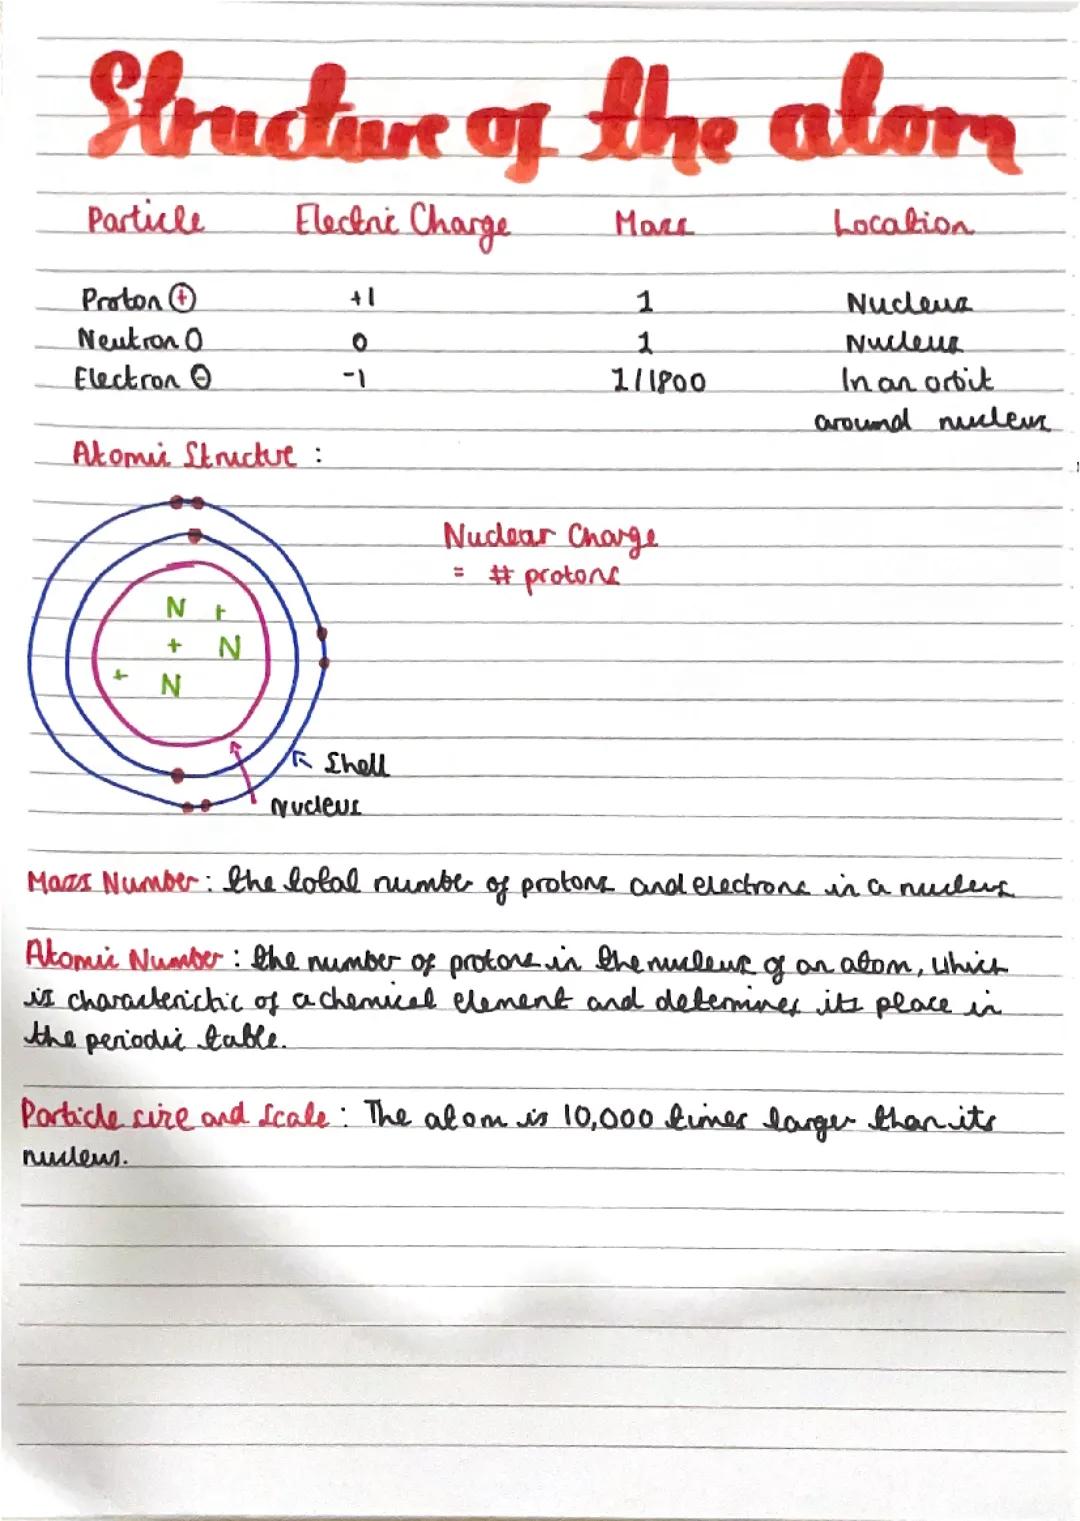 Structure of the atom
Particle Electric Charge Mass Location
Proton + +1 1 Nucleus
Neutron 0 0 1 Nucleus
Electron - -1 1/1800 In an orbit
around nucleus
Atomic Structure :
Nuclear Charge
= # protons
N +
+ N
+ N
Shell
Nucleus
Mass Number : the total number of protons and electrons in a nucleus
Atomic Number : the number of protons in the nucleus of an atom, which
is characterictic of a chemical element and determines its place in
the periodic table.
Particle size and scale : The atom is 10,000 times larger than its
nucleus.